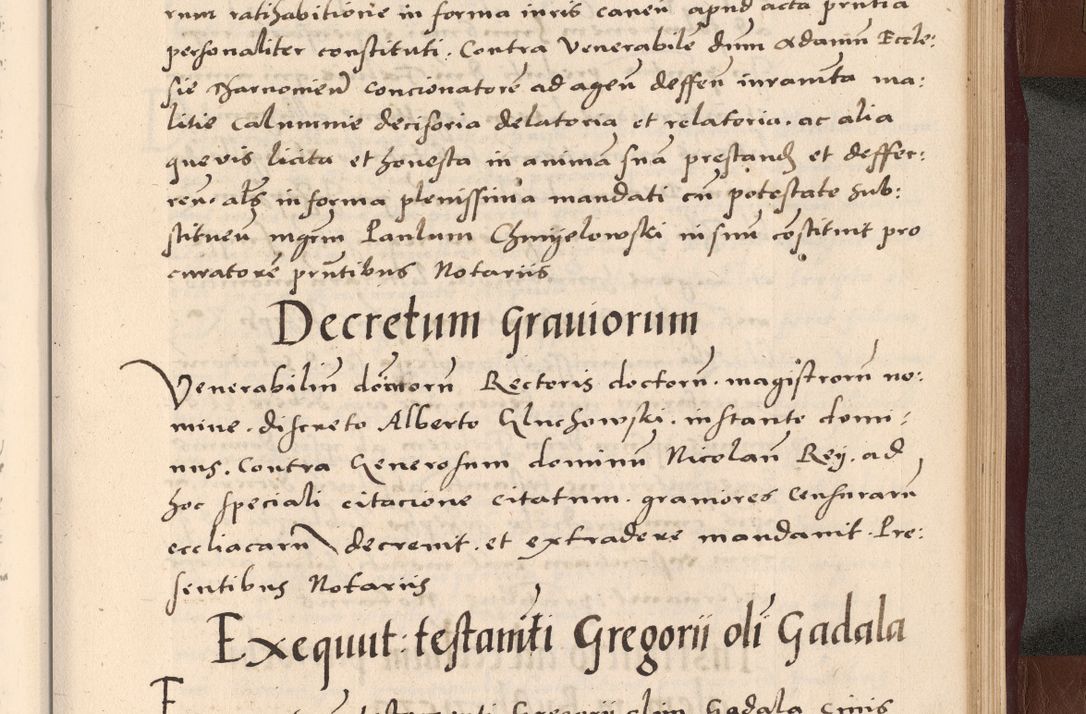 rum ratihabitione in forma iuris caueñ apud acta pñtia
personaliter constituti. Contra Venerabilē dnm Adamū Eccle:
sie Charnoniеñ concionatorē ad ageñ deffeñ iuramta ma:
litie calumnie decisoria delatoria et relatoria. ac alia
quevis licita et honesta in animā suā prestand et deffer:
ren. als in forma plenissima mandati cū potestate sub:
stitueñ mgrm Paulum Chmyelowski in suū cōstituit pro
curatorē pñtibus Notariis
Decretum Grauiorum
Venerabiliū dominorū Rectoris doctorū. magistrorū no:
mine. discreto Alberto Gluchowski. instante domi:
nus. Contra Generosum dominū Nicolaū Rey. ad
hoc speciali citacione citatum. grauiores Censurarū
eccliacarū decreuit. et extradere mandauit. Pre:
sentibus Notariis
Exequut: testamti Gregorii oli Gadala
testamenti Gregorii olim Gadala Ciuis